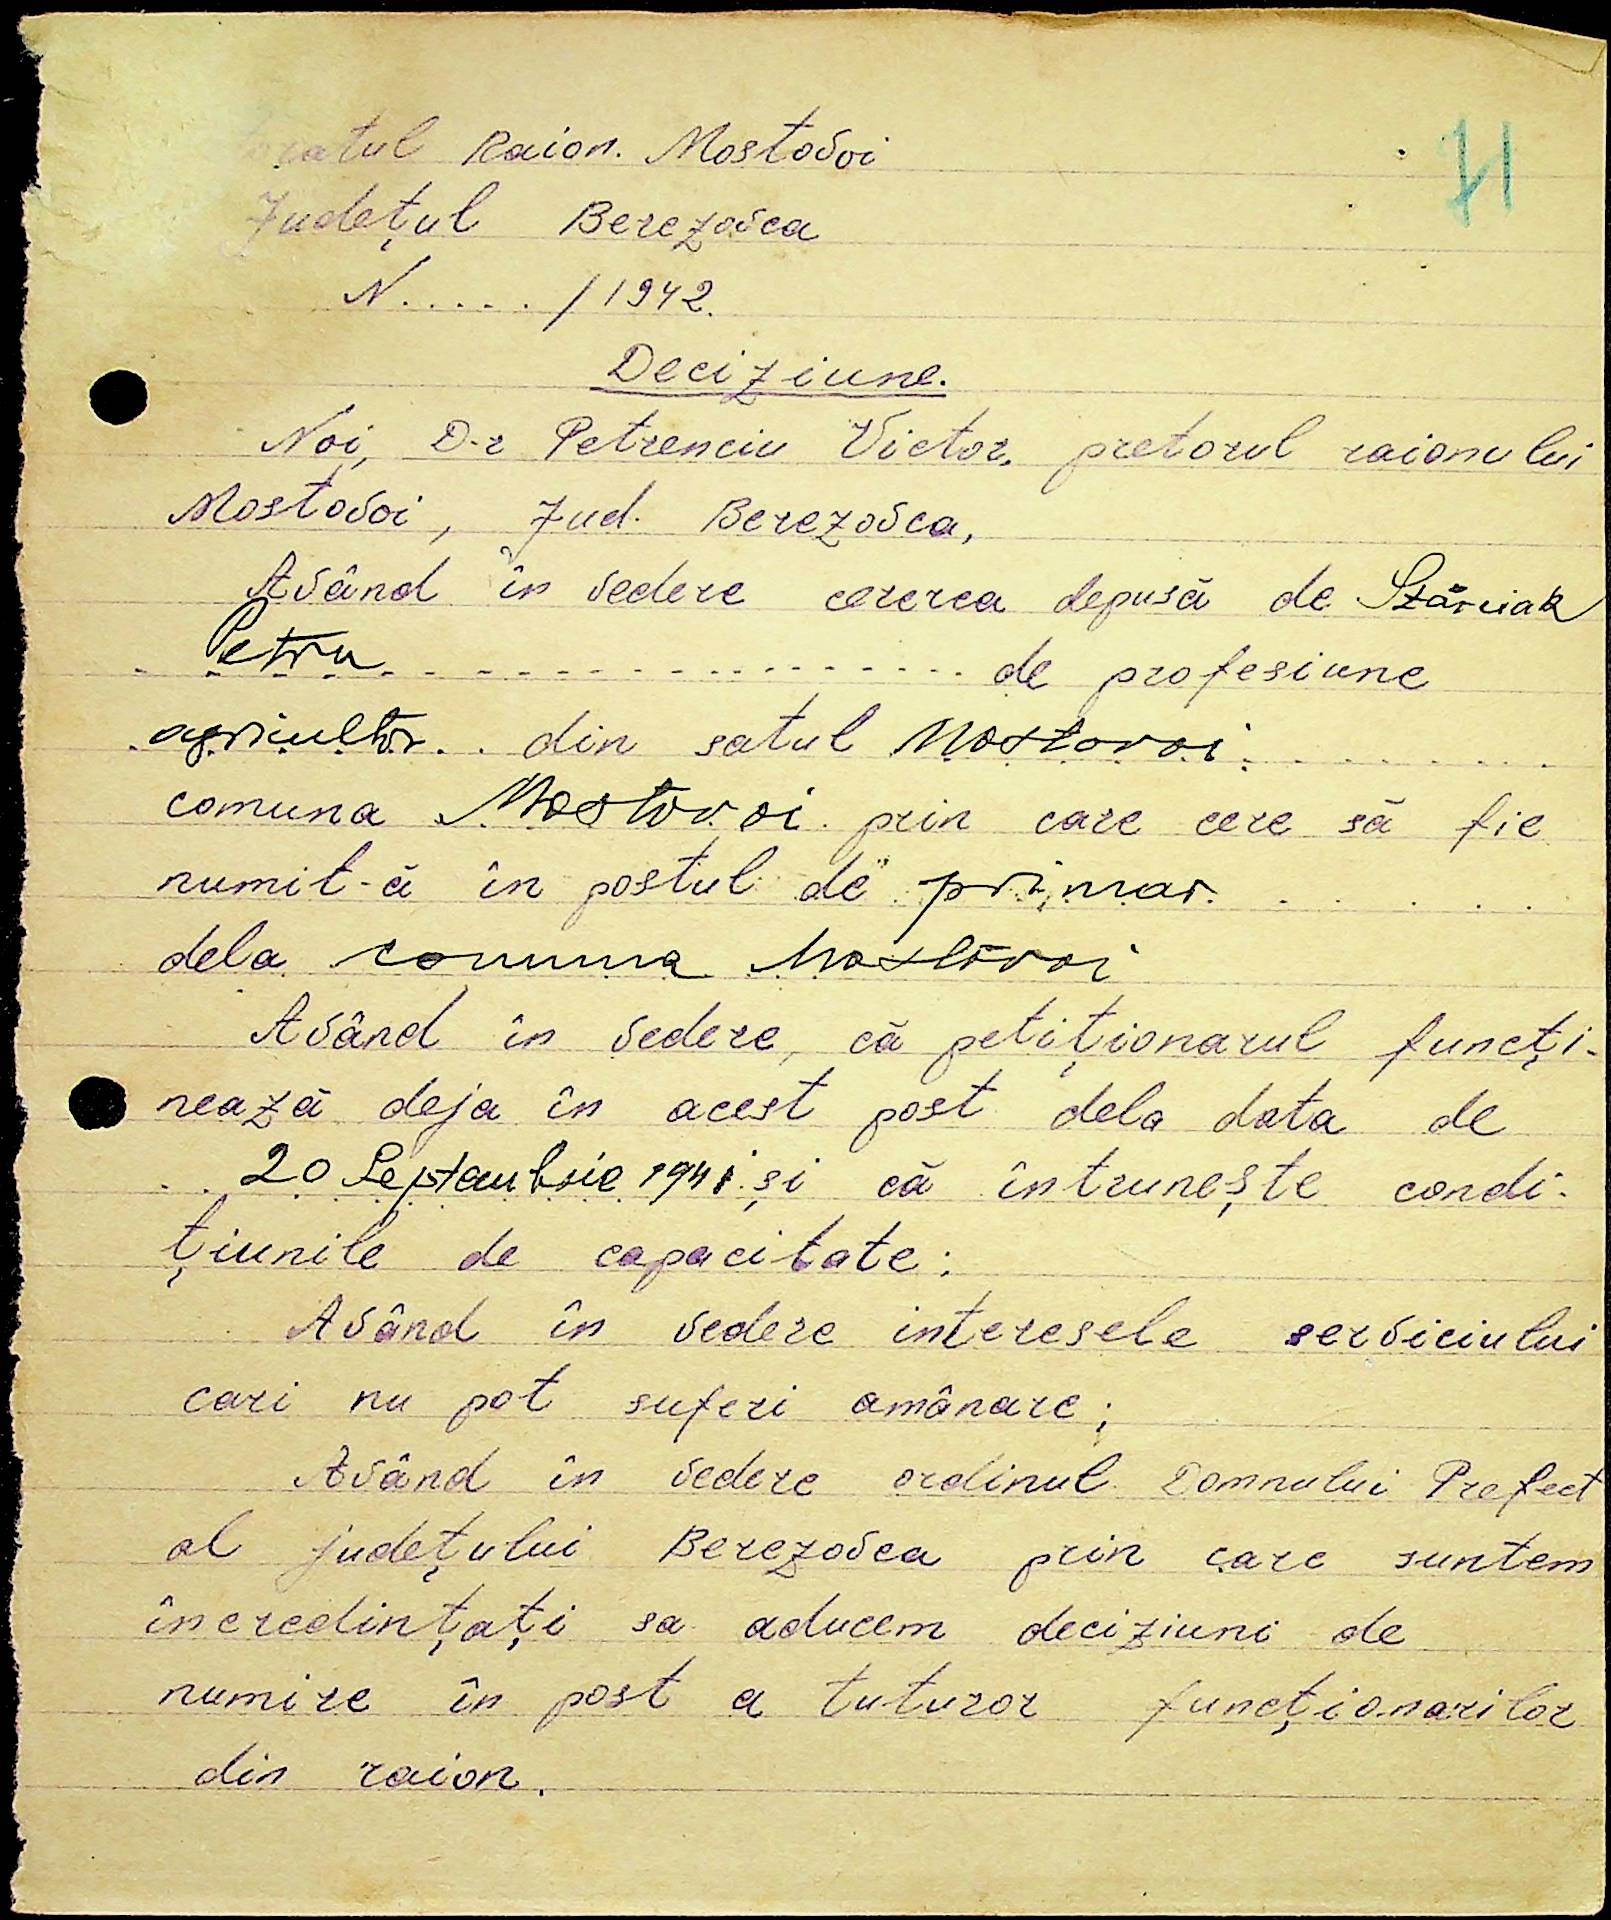 71
Raion. Mostovoi
Județul Berezovca
N...../1942.
Deciziune.
Noi, D-r Petrenciu Victor, pretorul raionului
Mostovoi, Jud. Berezovca,
Având în vedere cererea depusă de
Petru .................... de profesiune
agricultor.. din satul Mostovoi..........
comuna Mostovoi prin care cere să fie
numit-ă în postul de primar......
dela comuna Mostovoi
Având în vedere, că petiționarul funcți-
nează deja în acest post dela data de
..20 Septembrie 1941 și că întrunește condi-
țiunile de capacitate;
Având în vedere interesele serviciului
cari nu pot suferi amânare;
Având în vedere ordinul Domnului Prefect
al județului Berezovca prin care suntem
încredințați sa aducem deciziuni de
numire în post a tuturor funcționarilor
din raion.